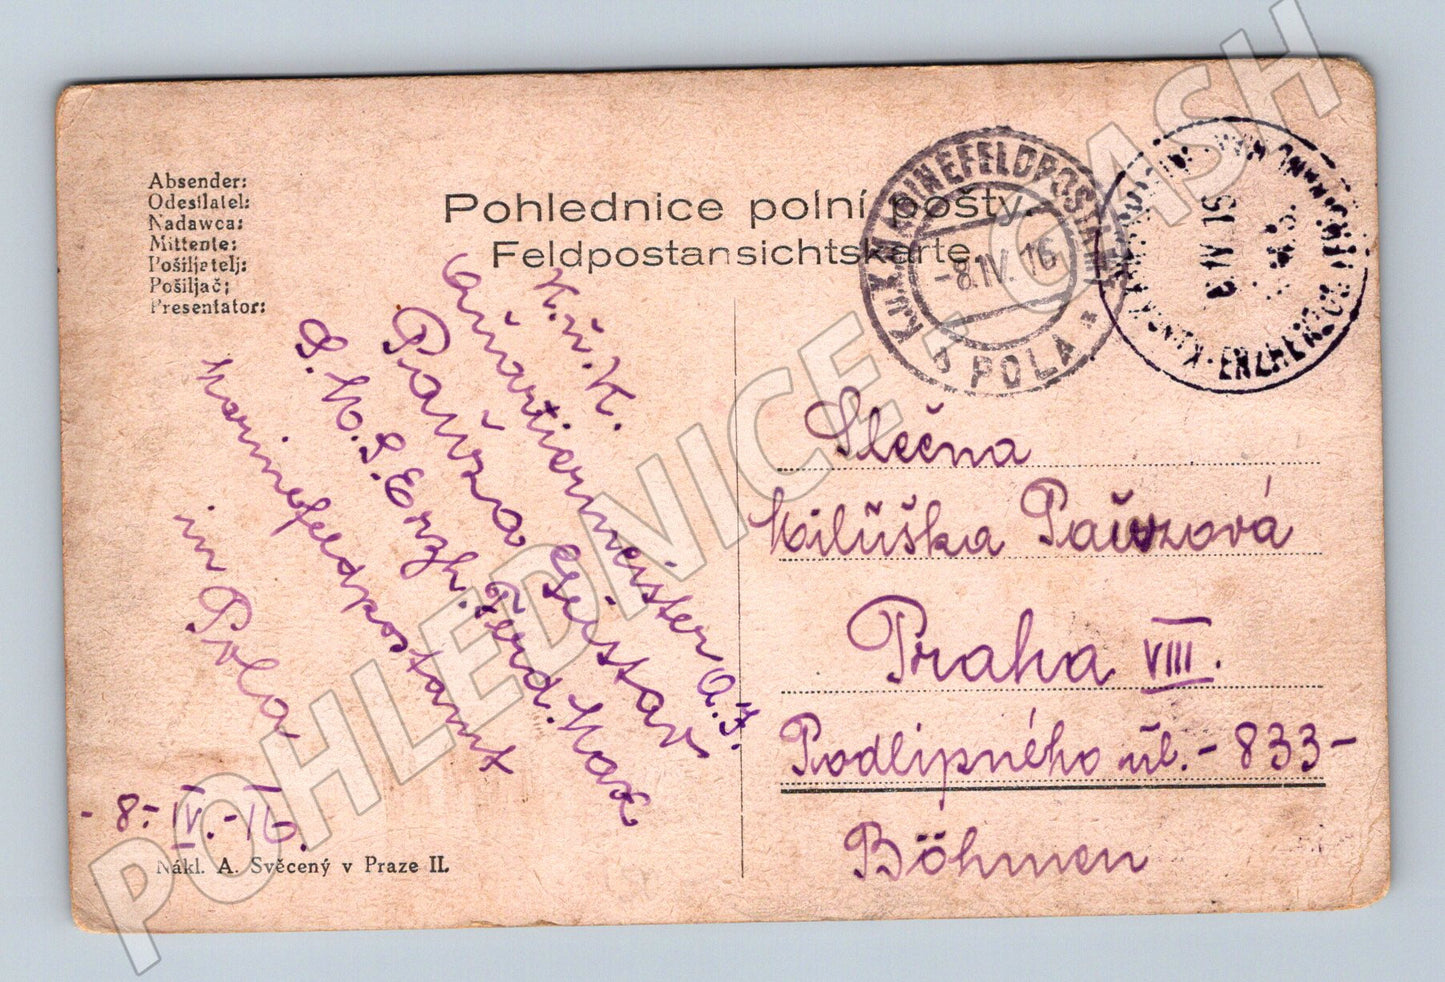 Absender:
Odesílatel:
Nadawca:
Mittente:
Pošiljatelj:
Pošiljač:
Presentator:
Pohlednice polní pošty.
Feldpostansichtskarte.
K.U.K. MARINEFELDPOSTAMT
-8.IV.16
b POLA *
K. u. K.
Pavúza Gustav
S. M. S. Erzh. Ferd. Max
Marinefeldpostamt
in Pola
- 8.- IV. - 16.
Nákl. A. Svěcený v Praze II.
Slečna
Miluška Pavúzová
Praha VIII.
Podlipného ul. - 833 -
Böhmen
POHLEDNICE - CASH